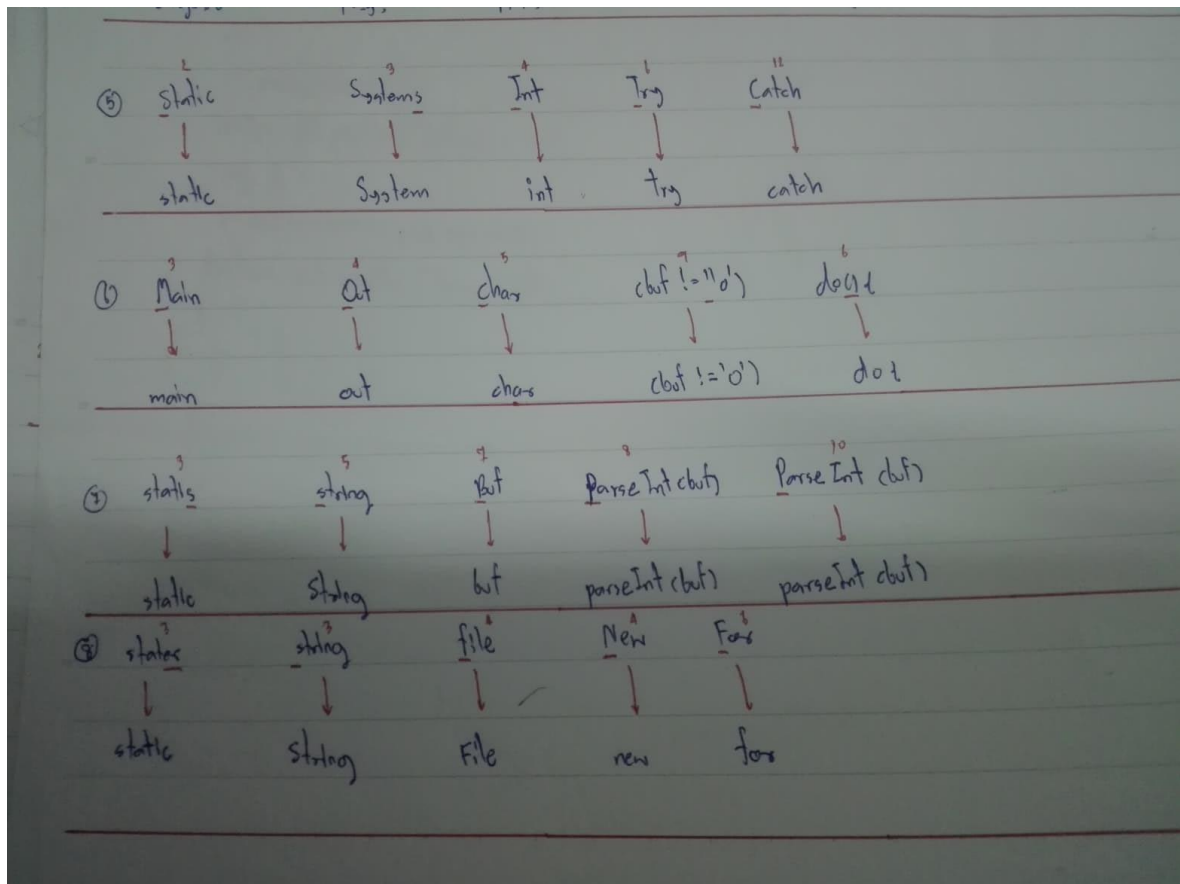 2 3 4 6 11
⑤ Static Systems Int Try Catch
static System int try catch
3 4 5 9 6
⑥ Main Out char (buf !="0') do
main out char (buf !='0')
3 5 7 8 10
⑦ statis string Buf ParseInt(buf) ParseInt (buf)
static String buf parseInt (buf) parseInt (buf)
3 3 4
⑧ states string file New For
static String File new for